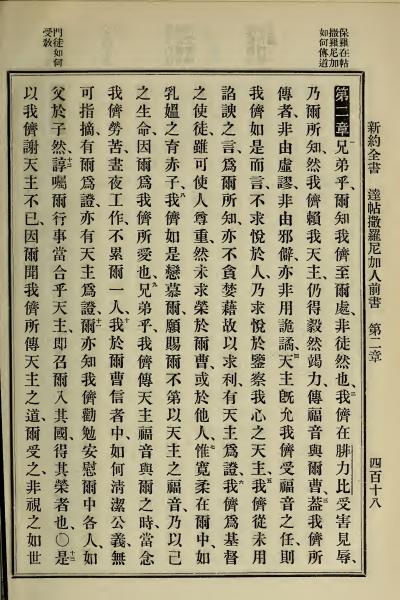 新約全書 達帖撒羅尼加人前書 第二章 四百十八
保羅在帖
撒羅尼加
如何傳道
門徒如何
受教
第二章 一兄弟乎、爾知我儕至爾處、非徒然也、二我儕在腓力比受害見辱、
乃爾所知、然我儕賴我天主、仍得毅然竭力傳福音與爾曹、三蓋我儕所
傳者、非由虛謬、非由邪僻、亦非用詭譎、四天主旣允我儕受福音之任、則
我儕如是而言、不求悅於人、乃求悅於鑒察我心之天主、五我儕從未用
諂諛之言、爲爾所知、亦不貪婪藉故以求利、有天主爲證、六我儕爲基督
之使徒、雖可使人尊重、然未求榮於爾曹、或於他人、七惟寬柔在爾中、如
乳媼之育赤子、八我儕如是戀慕爾、願賜爾不第以天主之福音、乃以己
之生命、因爾爲我儕所愛也、九兄弟乎、我儕傳天主福音與爾之時、當念
我儕勞苦、晝夜工作、不累爾一人、十我於爾曹信者中、如何清潔公義、無
可指摘、有爾爲證、亦有天主爲證、十一爾亦知我儕勸勉安慰爾中各人、如
父於子然、十二諄囑爾行事當合乎天主、卽召爾入其國、得其榮者也、〇十三是
以我儕謝天主不已、因爾聞我儕所傳天主之道、爾受之、非視之如世